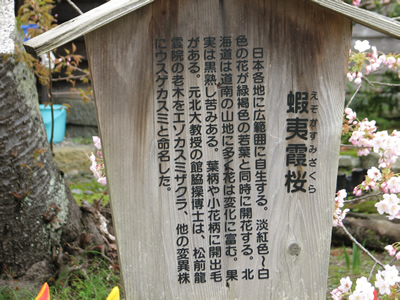 蝦夷霞桜
えぞかすみざくら
日本各地に広範囲に自生する。淡紅色～白
色の花が緑褐色の若葉と同時に開花する。北
海道は道南の山地に多く花は変化に富む。果
実は黒熟し苦みある。葉柄や小花柄に開出毛
がある。元北大教授の館脇操博士は、松前龍
雲院の老木をエゾカスミザクラ、他の変異株
にウスゲカスミと命名した。